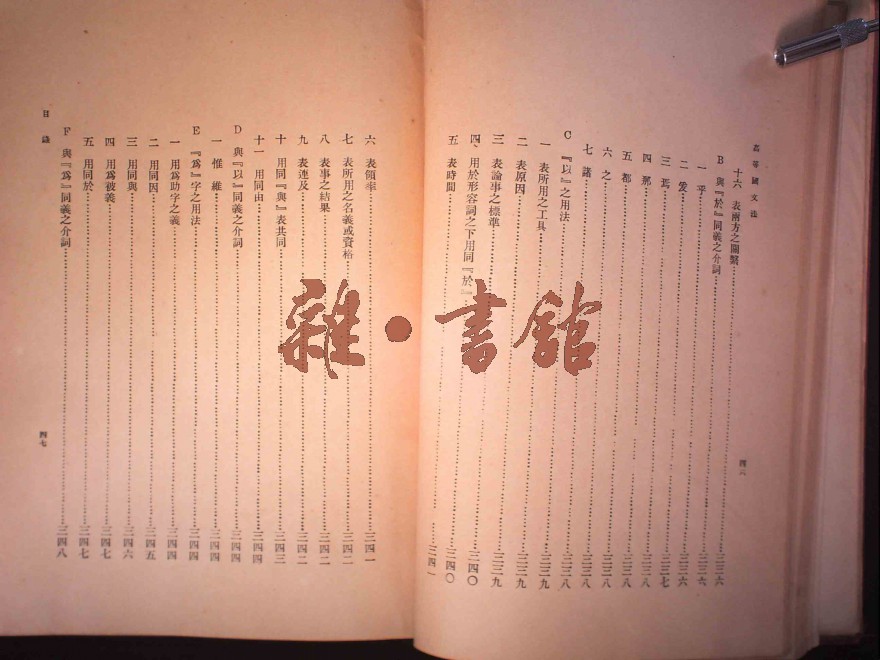 高等國文法
十六 表兩方之關繫……三三六
B 與『於』同義之介詞……三三六
一 乎……三三六
二 爰……三三七
三 焉……三三八
四 那……三三八
五 都……三三八
六 之……三三八
七 諸……三三八
C 『以』之用法……三三九
一 表所用之工具……三三九
二 表原因……三三九
三 表論事之標準……三四〇
四 用於形容詞之下用同『於』……三四〇
五 表時間……三四一
四六
六 表領率……三四一
七 表所用之名義或資格……三四二
八 表事之結果……三四二
九 表連及……三四二
十 用同『與』表共同……三四三
十一 用同由……三四四
D 與『以』同義之介詞……三四四
一 惟 維……三四四
E 『爲』字之用法……三四四
一 用爲助字之義……三四四
二 用同因……三四五
三 用同與……三四六
四 用爲被義……三四七
五 用同於……三四七
F 與『爲』同義之介詞……三四八
目錄
四七
雜·書館